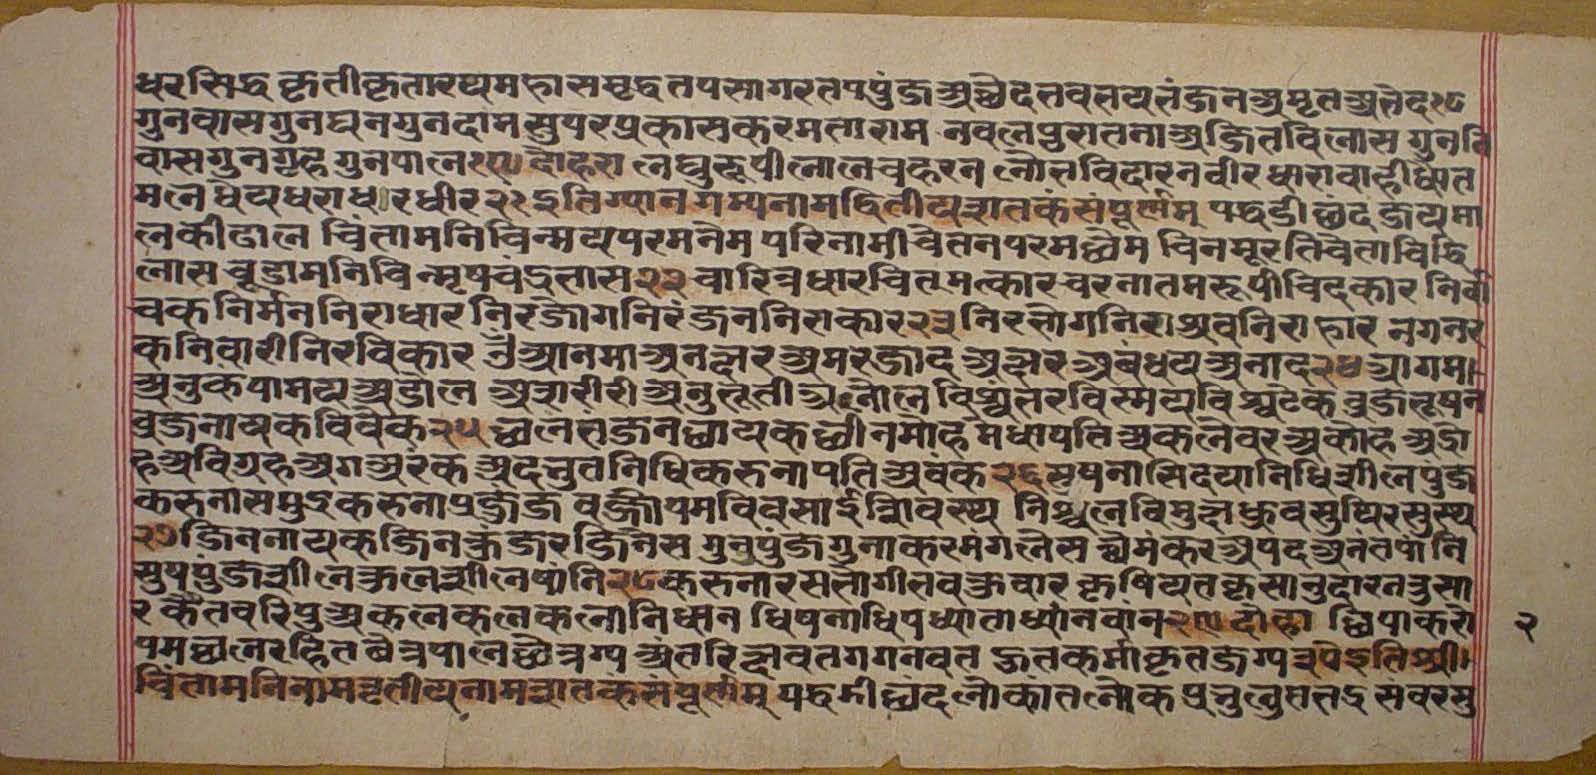 धर सिद्ध कृती कृतारथ महा समृद्ध तपसागर तपपुंज अछेद तवलय तंजन अमृत अतेद १८
गुनवास गुनघन गुनदाम सुपर प्रकास करमताराम नवल पुरातना अजितविलास गुननि
वास गुनगृह गुनपाल १९ दोहरा लघुरूपी लोलचहरन लोलविदारन वीर धारावाही धात
मल धय धराधर धीर २१ इति ग्यानगम्यनाम द्वितीय शतकं संपूर्णम् पद्धडी छंद जयमा
ल की ढाल चिंतामनि चिन्मय परमनेम परिनामी चेतन परमछेम चिनमूरति चेता चिद्वि
लास चूडामनि चिन्मय चंद्रतास २२ चारित्रधार चितमत्कार चरनातमरूपी चिदकार निर्वा
चक निर्मम निराधार निरजोग निरंजन निराकार २३ निरतोग निराश्रव निराहार नगनर
कनिवारी निरविकार आतमा अनक्षर अमरजाद अक्षर अबंध अनाद २४ आगम
अनुकंपामय अडोल अशरीरी अनुभूती अलोल विश्वंतर विस्मय विश्वटेक व्रजभूषन
व्रजनायक विवेक २५ छलतंजन छायक छीनमोह मेधापति अकलेवर अकोह अद्रो
ह अविगृह अग अरंक अदभुतनिधि करुनापति अवंक २६ सुषनासि दयानिधि शीलपुंज
करुनासमुद्र करुनाप्रजुंज वज्रोपम विवसाई त्रिवस्थ निश्चल विमुक्त ध्रुव सुथिर सुस्थ
२७ जिननायक जिनकुंजर जिनेस गुनपुंज गुनाकर मंगलेस छेमंकर अपद अनंतपानि
सुषपुंजशील कुलशील षांनि २८ करुनारसतोगी तवकुवार कृषियत कृसानु दारन तुसा
र कैतवरिपु अकल कलानिधान धिषनाधिप ध्याता ध्यानवान २९ दोहा छिपाकरो
पम छलरहित षेत्रपाल छेत्रग्य अंतरिक्षवत गगनवत हुतकर्मा कृतजग्य ३० इति श्री
चिंतामनिनाम तृतीयनाम शतकं संपूर्णम् पद्धडी छंद लोकांत लोकप्रभु लुप्त तद्र संवर सु
२